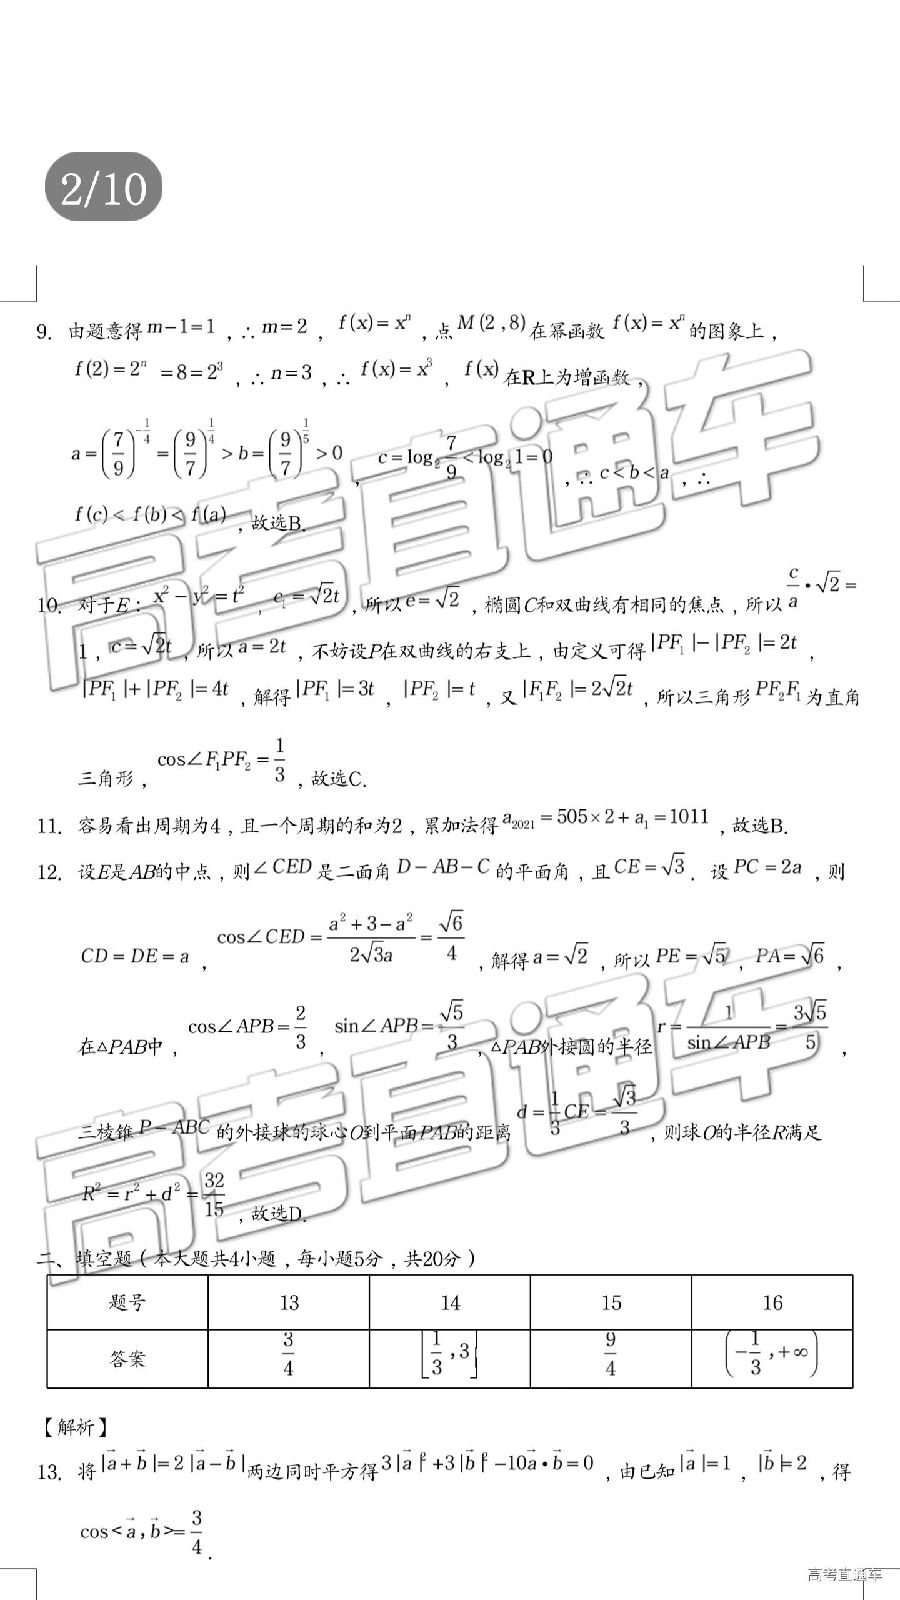 2/10
9. 由题意得 m-1=1 ，∴ m=2 ， f(x)=xⁿ ，点 M(2,8) 在幂函数 f(x)=xⁿ 的图象上，
f(2)=2ⁿ =8=2³ ，∴ n=3 ，∴ f(x)=x³ ， f(x) 在R上为增函数，
a=(7/9)^(-1/4)=(9/7)^(1/4)>b=(9/7)^(1/5)>0 ， c=log₂7/9<log₂1=0 ，∴ c<b<a ，∴
f(c)<f(b)<f(a) ，故选B.
10. 对于E： x²-y²=t² ， c₁=√2t ，所以 e=√2 ，椭圆C和双曲线有相同的焦点，所以 c/a•√2=
1， c=√2t ，所以 a=2t ，不妨设P在双曲线的右支上，由定义可得 |PF₁|-|PF₂|=2t ，
|PF₁|+|PF₂|=4t ，解得 |PF₁|=3t ， |PF₂|=t ，又 |F₁F₂|=2√2t ，所以三角形 PF₂F₁ 为直角
三角形， cos∠F₁PF₂=1/3 ，故选C.
11. 容易看出周期为4，且一个周期的和为2，累加法得 a₂₀₂₁=505×2+a₁=1011 ，故选B.
12. 设E是AB的中点，则 ∠CED 是二面角 D-AB-C 的平面角，且 CE=√3 . 设 PC=2a ，则
CD=DE=a ， cos∠CED=(a²+3-a²)/(2√3a)=√6/4 ，解得 a=√2 ，所以 PE=√5 ， PA=√6 ，
在△PAB中， cos∠APB=2/3 ， sin∠APB=√5/3 ，△PAB外接圆的半径 r=1/(sin∠APB)=3√5/5 ，
三棱锥 P-ABC 的外接球的球心O到平面PAB的距离 d=1/3CE=√3/3 ，则球O的半径R满足
R²=r²+d²=32/15 ，故选D.
二、填空题（本大题共4小题，每小题5分，共20分）
题号 13 14 15 16
答案 3/4 [1/3,3] 9/4 (-1/3,+∞)
【解析】
13. 将 |a⃗+b⃗|=2|a⃗-b⃗| 两边同时平方得 3|a⃗|²+3|b⃗|²-10a⃗•b⃗=0 ，由已知 |a⃗|=1 ， |b⃗|=2 ，得
cos<a⃗,b⃗>=3/4 .
高考直通车
高考直通车
高考直通车